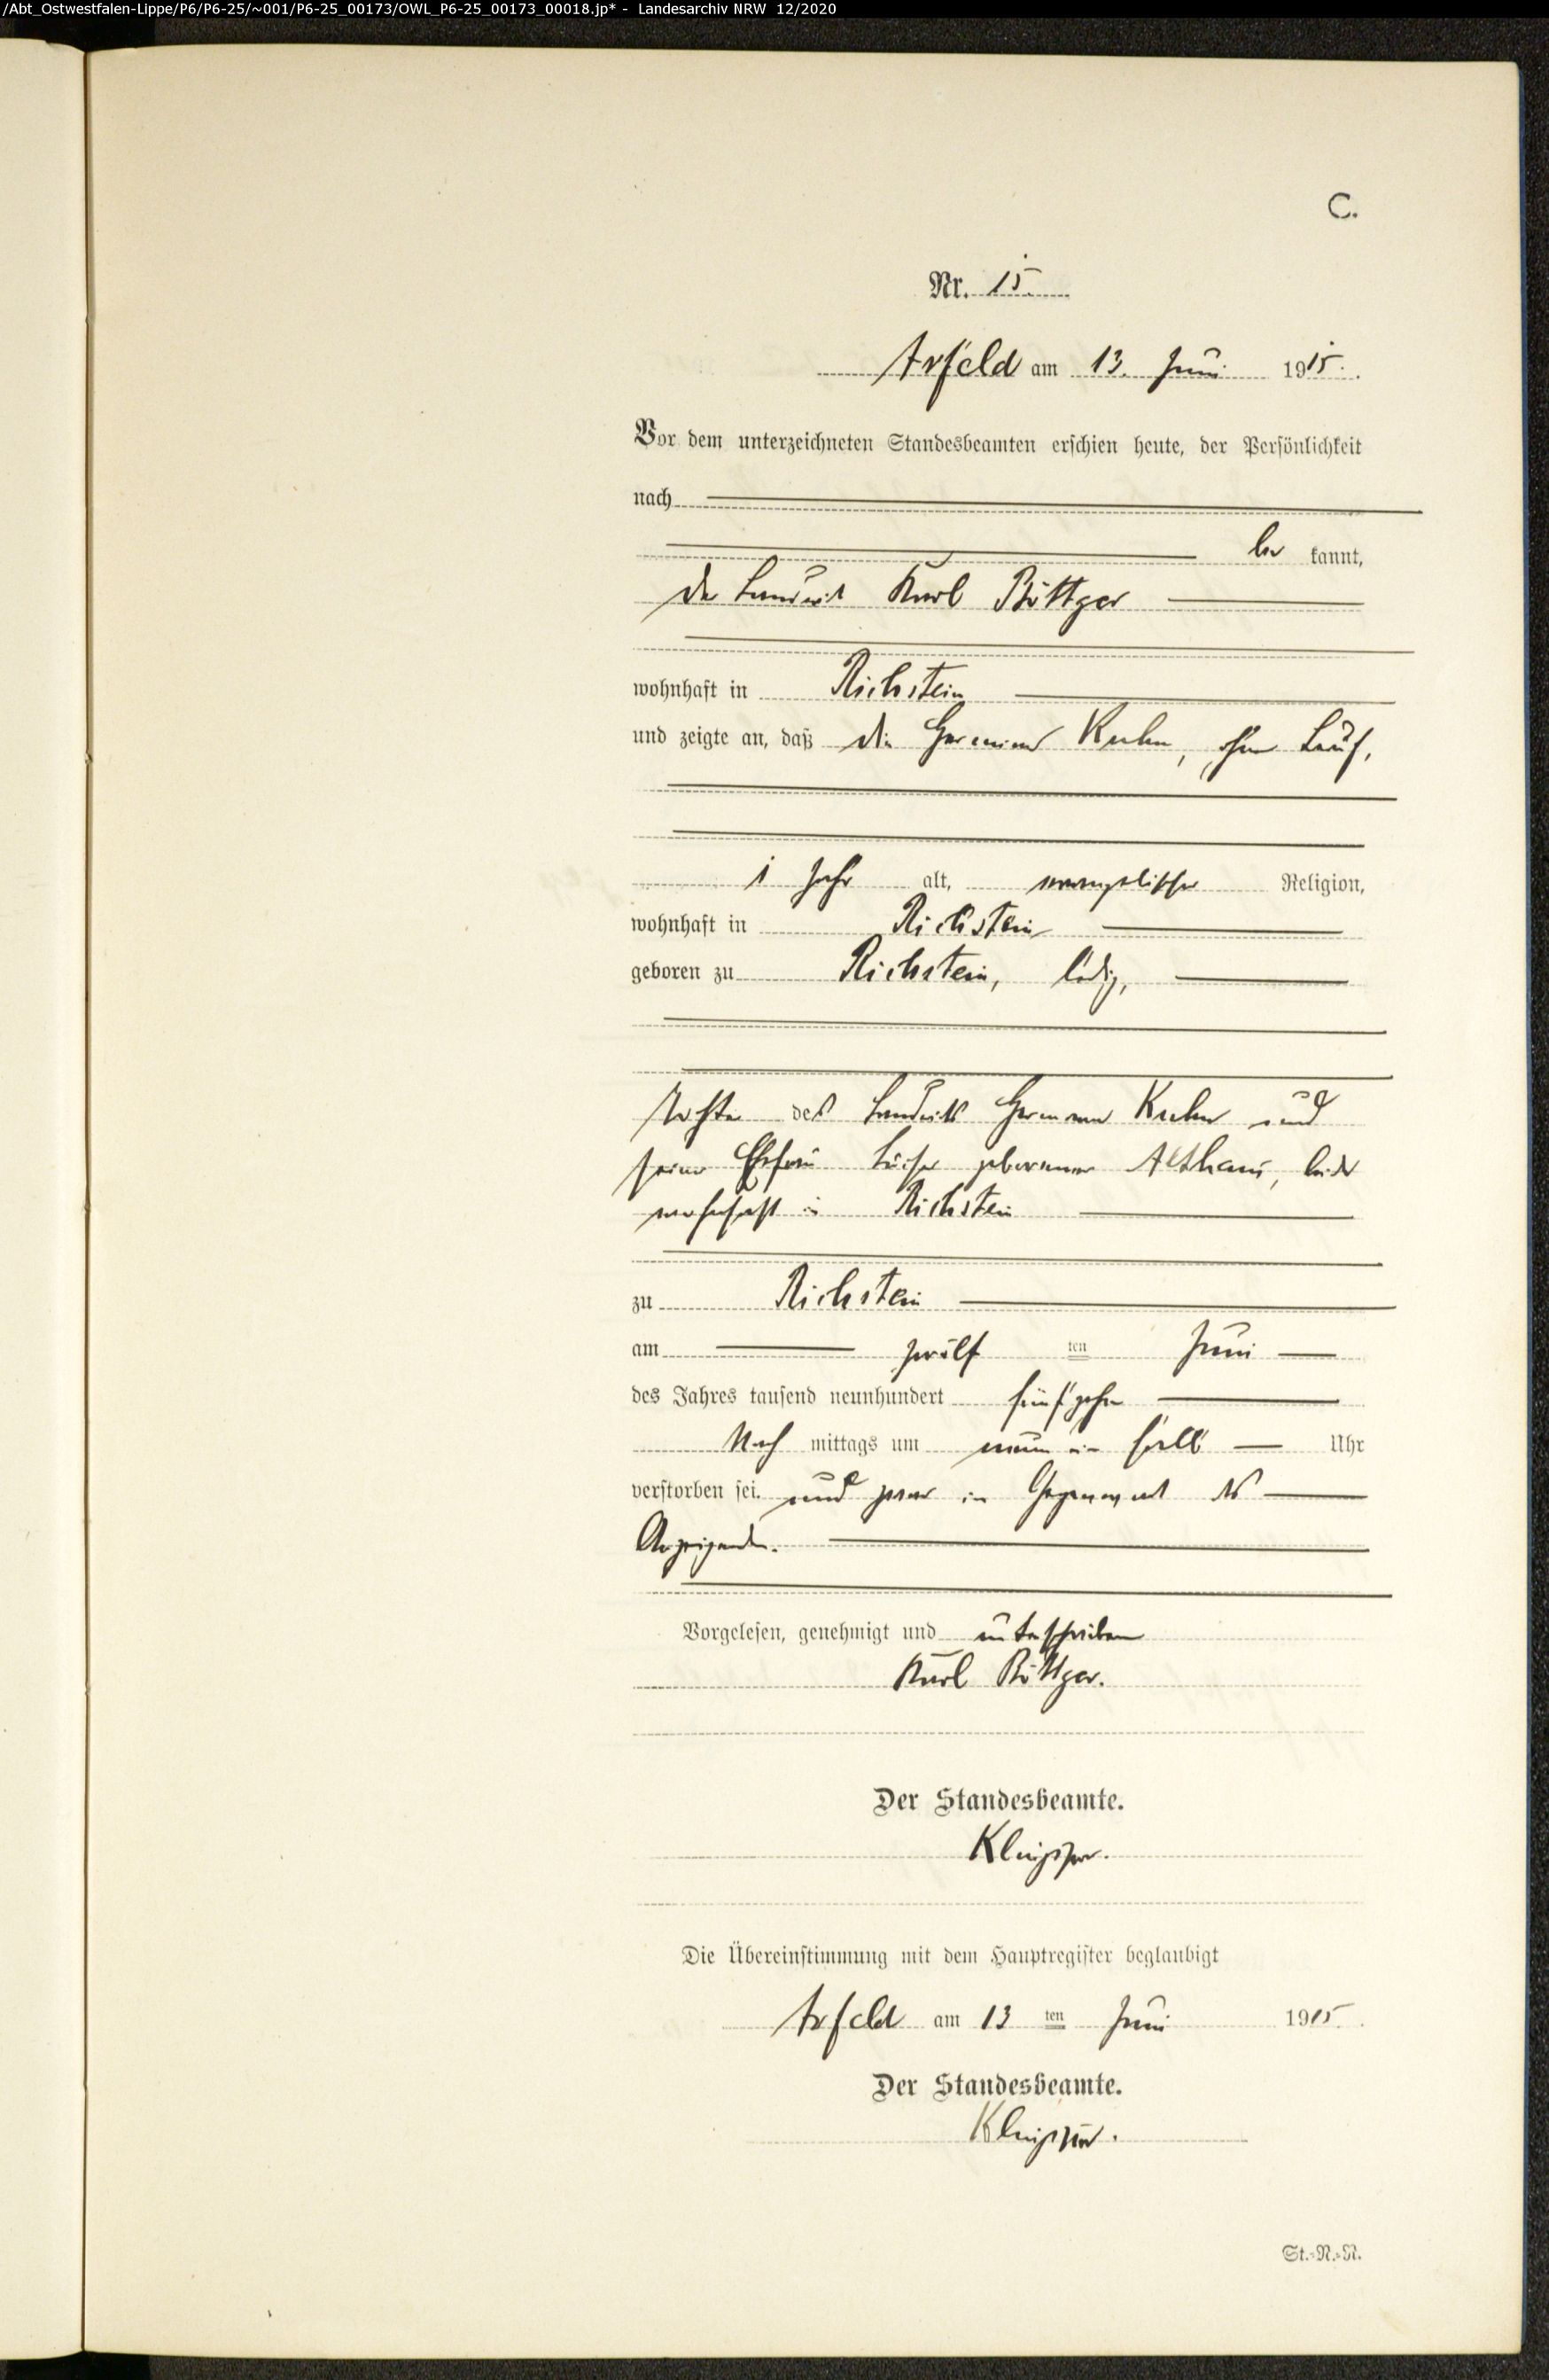 /Abt_Ostwestfalen-Lippe/P6/P6-25/~001/P6-25_00173/OWL_P6-25_00173_00018.jp* - Landesarchiv NRW 12/2020
C.
Nr. 15.
Arfeld am 13. Juni 1915.
Vor dem unterzeichneten Standesbeamten erschien heute, der Persönlichkeit
nach
be kannt,
der Landwirt Karl Böttger
wohnhaft in Richstein
und zeigte an, daß die Hermine Kuhn, ohne Beruf,
1 Jahr alt, evangelischer Religion,
wohnhaft in Richstein
geboren zu Richstein, ledig,
Tochter des Landwirts Hermann Kuhn und
seiner Ehefrau Luise geborenen Althaus, beide
wohnhaft in Richstein
zu Richstein
am zwölf ten Juni
des Jahres tausend neunhundert fünfzehn
Nach mittags um neun ein halb Uhr
verstorben sei. und zwar in Gegenwart des
Anzeigenden.
Vorgelesen, genehmigt und unterschrieben
Karl Böttger.
Der Standesbeamte.
Die Übereinstimmung mit dem Hauptregister beglaubigt
Arfeld am 13 ten Juni 1915.
Der Standesbeamte.
St.-N.-R.